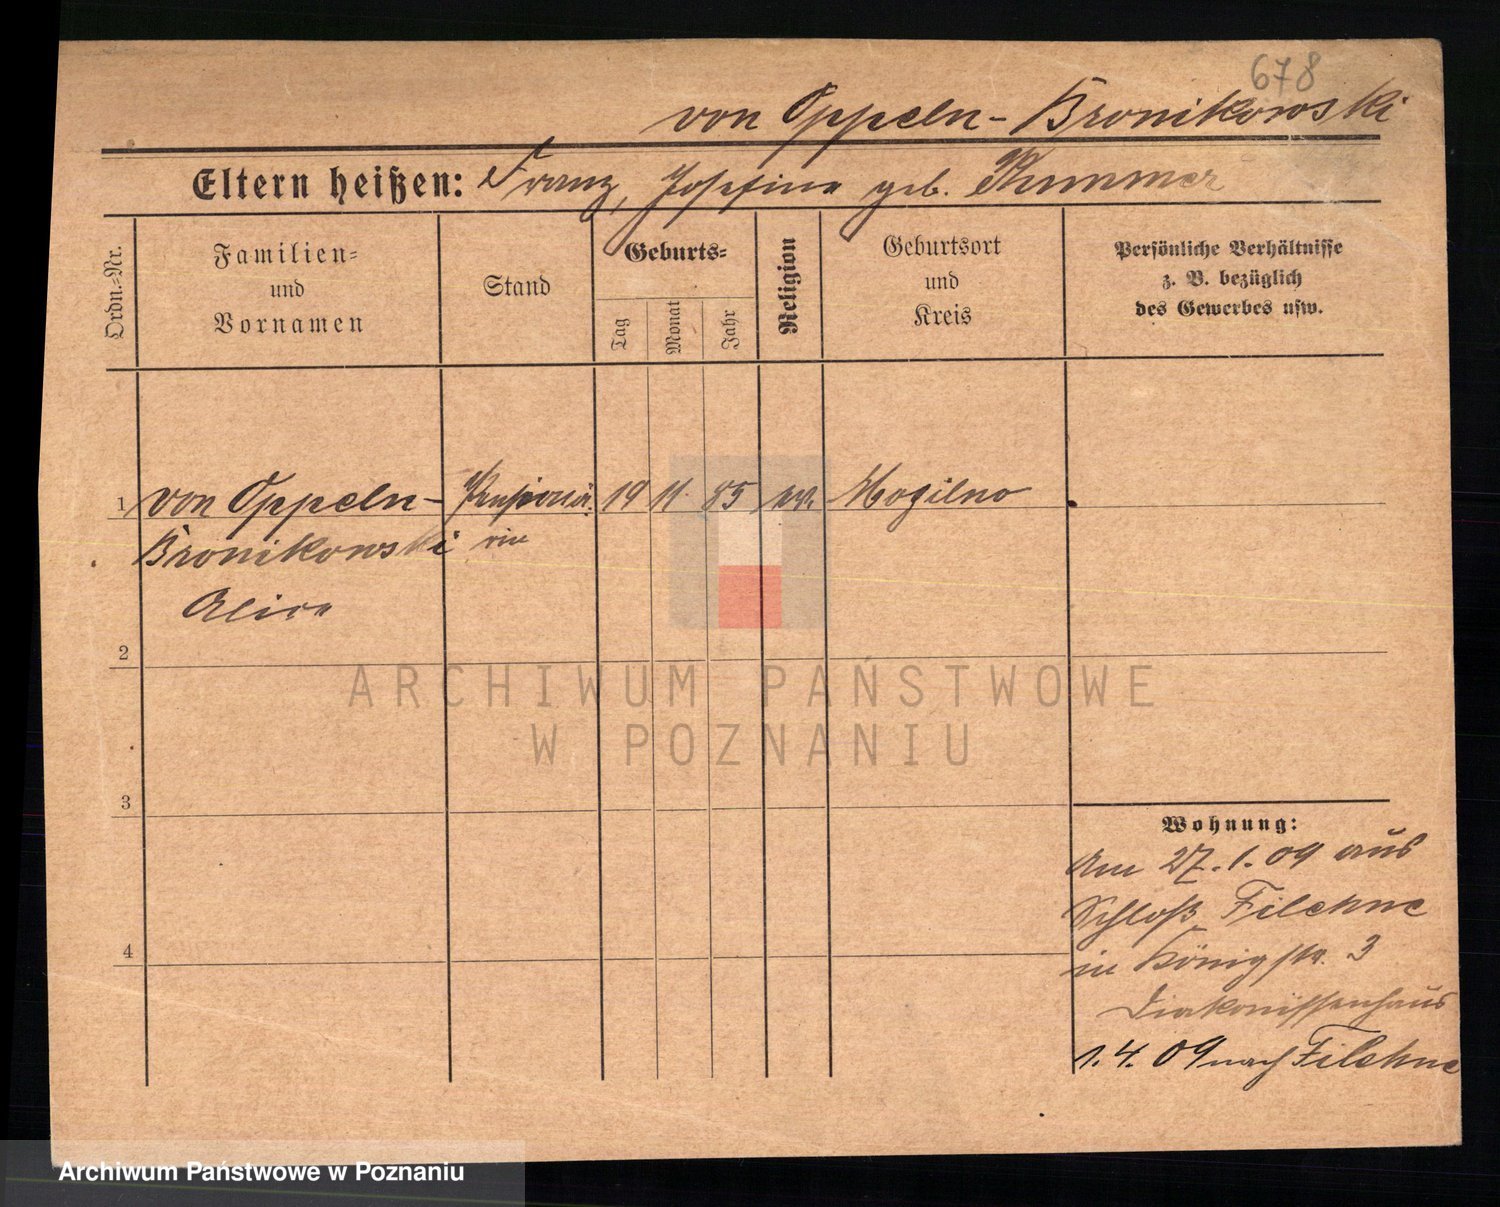 678
von Oppeln-Bronikowski
Eltern heißen: Franz, Josefine geb. Kummer
Ordn.-Nr.
Familien-
und
Vornamen
Stand
Geburts-
Tag
Monat
Jahr
Religion
Geburtsort
und
Kreis
Persönliche Verhältnisse
z. B. bezüglich
des Gewerbes usw.
1 von Oppeln- Pensionä- 19 11. 85 ev. Mogilno
Bronikowski rin
Alice
2
3
4
Wohnung:
Am 27.1.09 aus
Schloß Filehne
in Königstr. 3
Diakonissenhaus
1.4.09 nach Filehne
ARCHIWUM PAŃSTWOWE
W POZNANIU
Archiwum Państwowe w Poznaniu